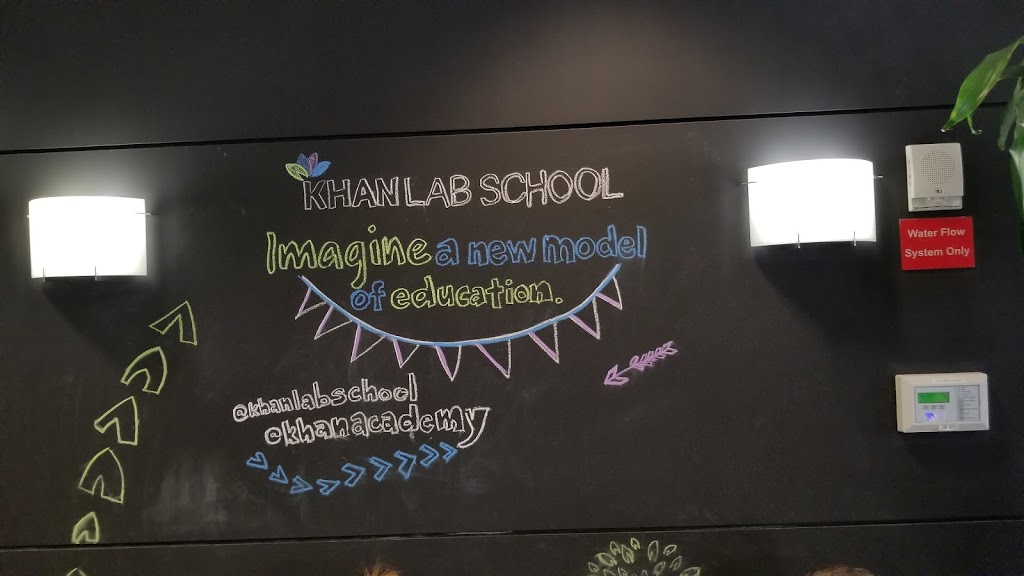 KHAN LAB SCHOOL
Imagine a new model
of education.
@khanlabschool
@khanacademy
Water Flow
System Only